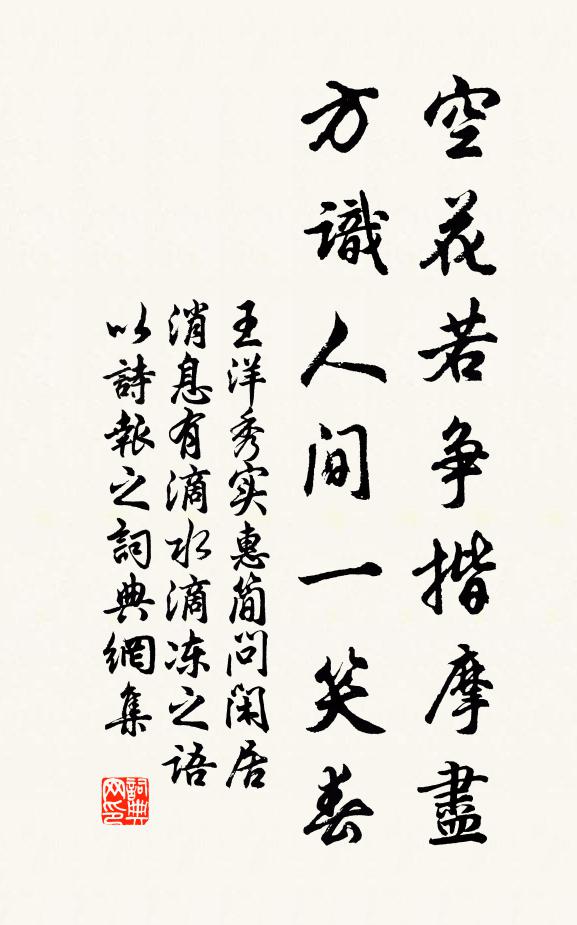 空花若争揩摩盡
方識人间一笑春
王洋秀实惠简问闲居
消息有滴水滴冻之语
以詩報之詞典網集
詞典
网印